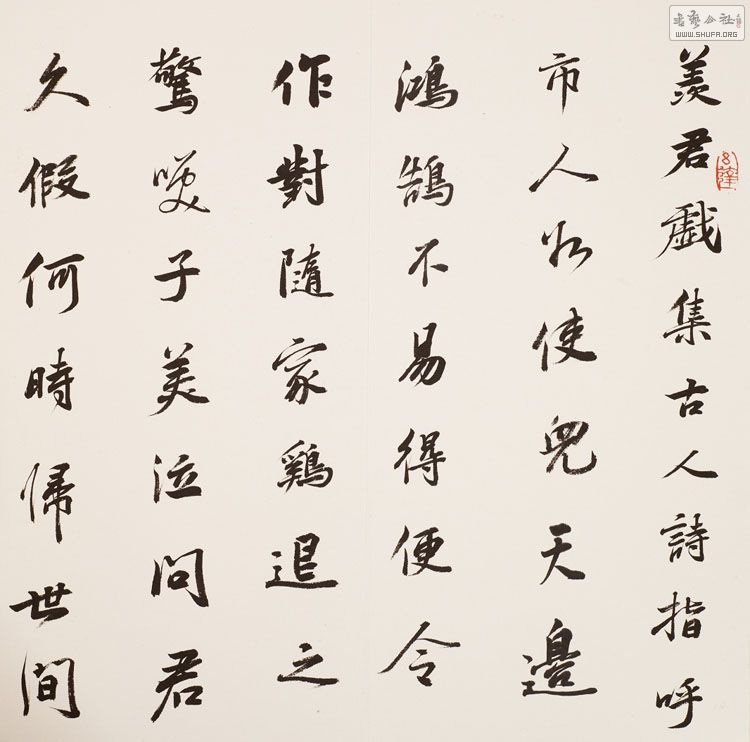 羨君戲集古人詩指呼
市人如使兒天邊
鴻鵠不易得便令
作對隨家鷄退之
驚咲子美泣問君
久假何時歸世間
WWW.SHUFA.ORG